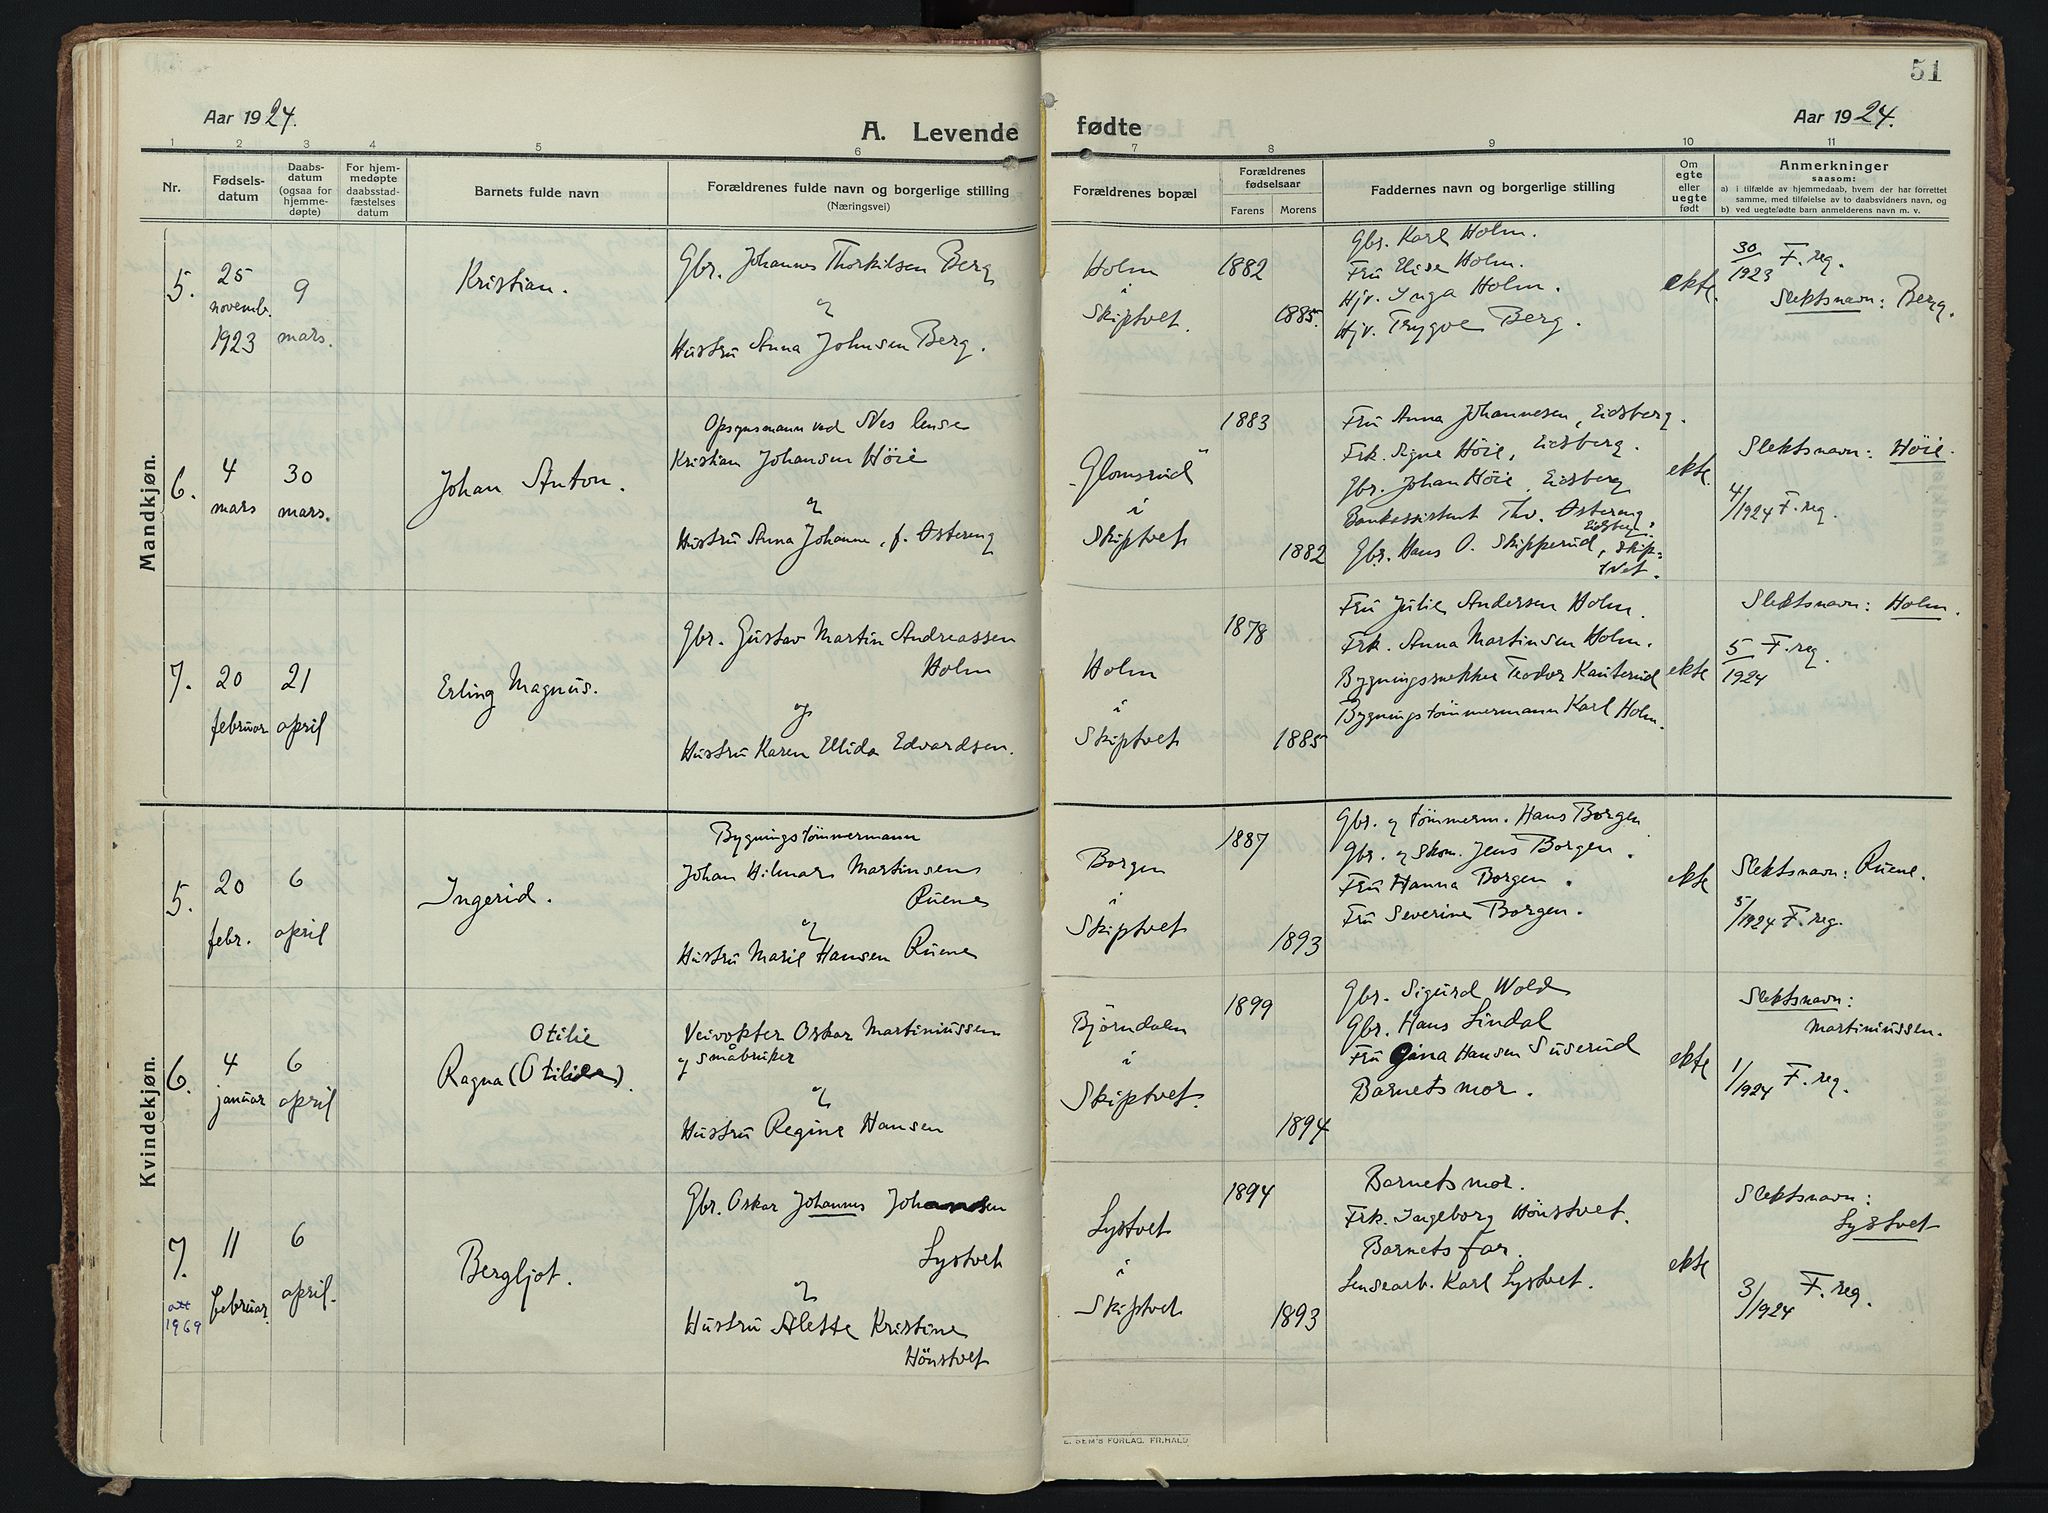 51
Aar 1924.
A. Levende fødte
Aar 1924.
1 2 3 4 5 6 7 8 9 10 11
Nr.
Fødsels-
datum
Daabs-
datum
(ogsaa for
hjemme-
døpte)
For hjem-
medøpte
daabsstad-
fæstelses
datum
Barnets fulde navn
Forældrenes fulde navn og borgerlige stilling
(Næringsvei)
Forældrenes bopæl
Forældrenes
fødselsaar
Farens Morens
Faddernes navn og borgerlige stilling
Om
egte
eller
uegte
født
Anmerkninger
saasom:
a) i tilfælde av hjemmedaab, hvem der har forrettet
samme, med tilføielse av to daabsvidners navn, og
b) ved uegtefødte barn anmelderens navn m. v.
Mandkjøn.
5.
25
novemb.
1923
9
mars.
Kristian.
Gbr. Johannes Thorkilsen Berg
og
Hustru Anna Johnsen Berg.
Holm
i
Skiptvet.
1882
1885.
Gbr. Karl Holm.
Fru Elise Holm.
Hjv. Inga Holm.
Hjv. Trygve Berg.
ekte.
30/1923 F. reg.
Slektsnavn: Berg.
6.
4
mars
30
mars.
Johan Anton.
Opsynsmann ved Nes lense
Kristian Johansen Höie
og
Hustru Anna Johanne, f. Østereng
"Glomsrud"
i
Skiptvet
1883
1882
Fru Anna Johannesen, Eidsberg.
Frk. Signe Höie, Eidsberg.
Gbr. Johan Höie, Eidsberg
Bankassistent Thv. Østereng,
Eidsberg.
Gbr. Hans O. Skipperud, Skip-
tvet.
ekte.
Slektsnavn: Höie.
4/1924 F. reg.
7.
20
februar
21
april
Erling Magnus.
Gbr. Gustav Martin Andreassen
Holm
og
Hustru Karen Ellida Edvardsen.
Holm
i
Skiptvet
1878
1885
Fru Julie Andersen Holm.
Frk. Anna Martinsen Holm.
Bygningssnekker Teodor Kanterud
Bygningstömmermann Karl Holm.
ekte
Slektsnavn: Holm.
5/1924 F. reg.
Kvindekjøn.
5.
20
febr.
6
april
Ingerid.
Bygningstömmermann
Johan Hilmar Martinsen
Ruene
og
Hustru Marie Hansen Ruene
Borgen
i
Skiptvet
1887
1893
Gbr. og tömmerm. Hans Borgen
Gbr. og Skom. Jens Borgen.
Fru Hanna Borgen.
Fru Severine Borgen.
ekte
Slektsnavn: Ruene.
5/1924 F. reg.
6.
4
januar
6
april
Otilie
Ragna (Otilie).
Veivokter Oskar Martiniussen
og småbruker
og
Hustru Regine Hansen
Björndalen
i
Skiptvet.
1899
1894
Gbr. Sigurd Wold
Gbr. Hans Lindal
Fru Gina Hansen Suserud
Barnets mor.
ekte
Slektsnavn:
Martiniussen.
1/1924 F. reg.
7.
att
1969
11
februar.
6
april.
Bergljot.
Gbr. Oskar Johannes Johansen
Lystvet
og
Hustru Alette Kristine
Hönstvet
Lystvet
i
Skiptvet
1894
1893
Barnets mor.
Frk. Ingeborg Hönstvet.
Barnets far.
Lensearb. Karl Lystvet.
ekte
Slektsnavn:
Lystvet
3/1924 F. reg.
E. SEM'S FORLAG. FR.HALD